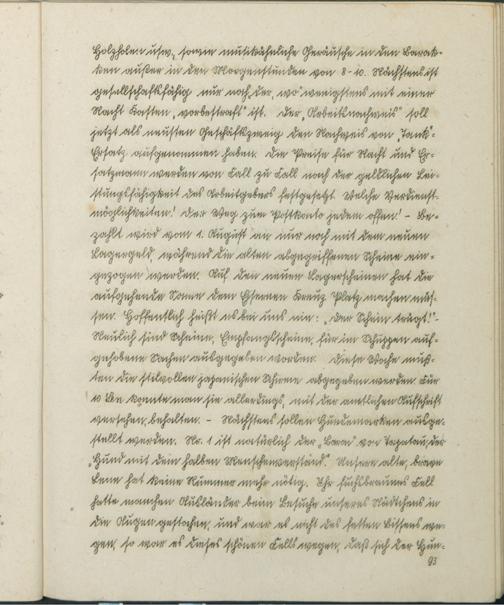 Holzholen usw., sowie musikähnliche Geräusche in den Barak-
ken außer in den Morgenstunden von 8-10. Nächstens ist
gesellschaftsfähig nur noch der, wo wenigstens mit einer
Nacht Kasten „vorbestraft“ ist. Der „Arbeitsnachweis“ soll
jetzt als neusten Geschäftszweig den Nachweis von „Tank-
Ersatz aufgenommen haben. Die Preise für Nacht und Er-
satzmann werden von Fall zu Fall nach der geldlichen Lei-
stungsfähigkeit des Arbeitgebers festgesetzt. Welche Verdienst-
möglichkeiten! Der Weg zum Postkonto jedem offen! – Be-
zahlt wird vom 1. August an nur noch mit dem neuen
Lagergeld, während die alten abgegriffenen Scheine ein-
gezogen werden. Auf den neuen Lagerscheinen hat die
aufgehende Sonne dem Eisernen Kreuz Platz machen müs-
sen. Hoffentlich heißt es bei uns nie: „Der Schein trügt!“
Neulich sind Scheine, Empfangsscheine, für im Schuppen auf-
gehobene Sachen ausgegeben worden. Diese Woche muß-
ten die stilvollen japanischen Schirme abgegeben werden. Für
10 Sen konnte man sie allerdings, mit der amtlichen Aufschrift
versehen, behalten. – Nächstens sollen Hundemarken ausge-
stellt werden. Nr. 1 ist natürlich der „Lene“ von Tapatau, der
Hund mit dem halben Menschenverstand“. Unsere alte, brave
Lene hat keine Nummer mehr nötig. Ihr fuchsbraunes Fell
hatte manchem Ausländer beim Besuche unseres Städtchens in
die Augen gestochen, und war es nicht des fetten Bissens we-
gen, so war es dieses schönen Fells wegen, daß sich der Hun-
93